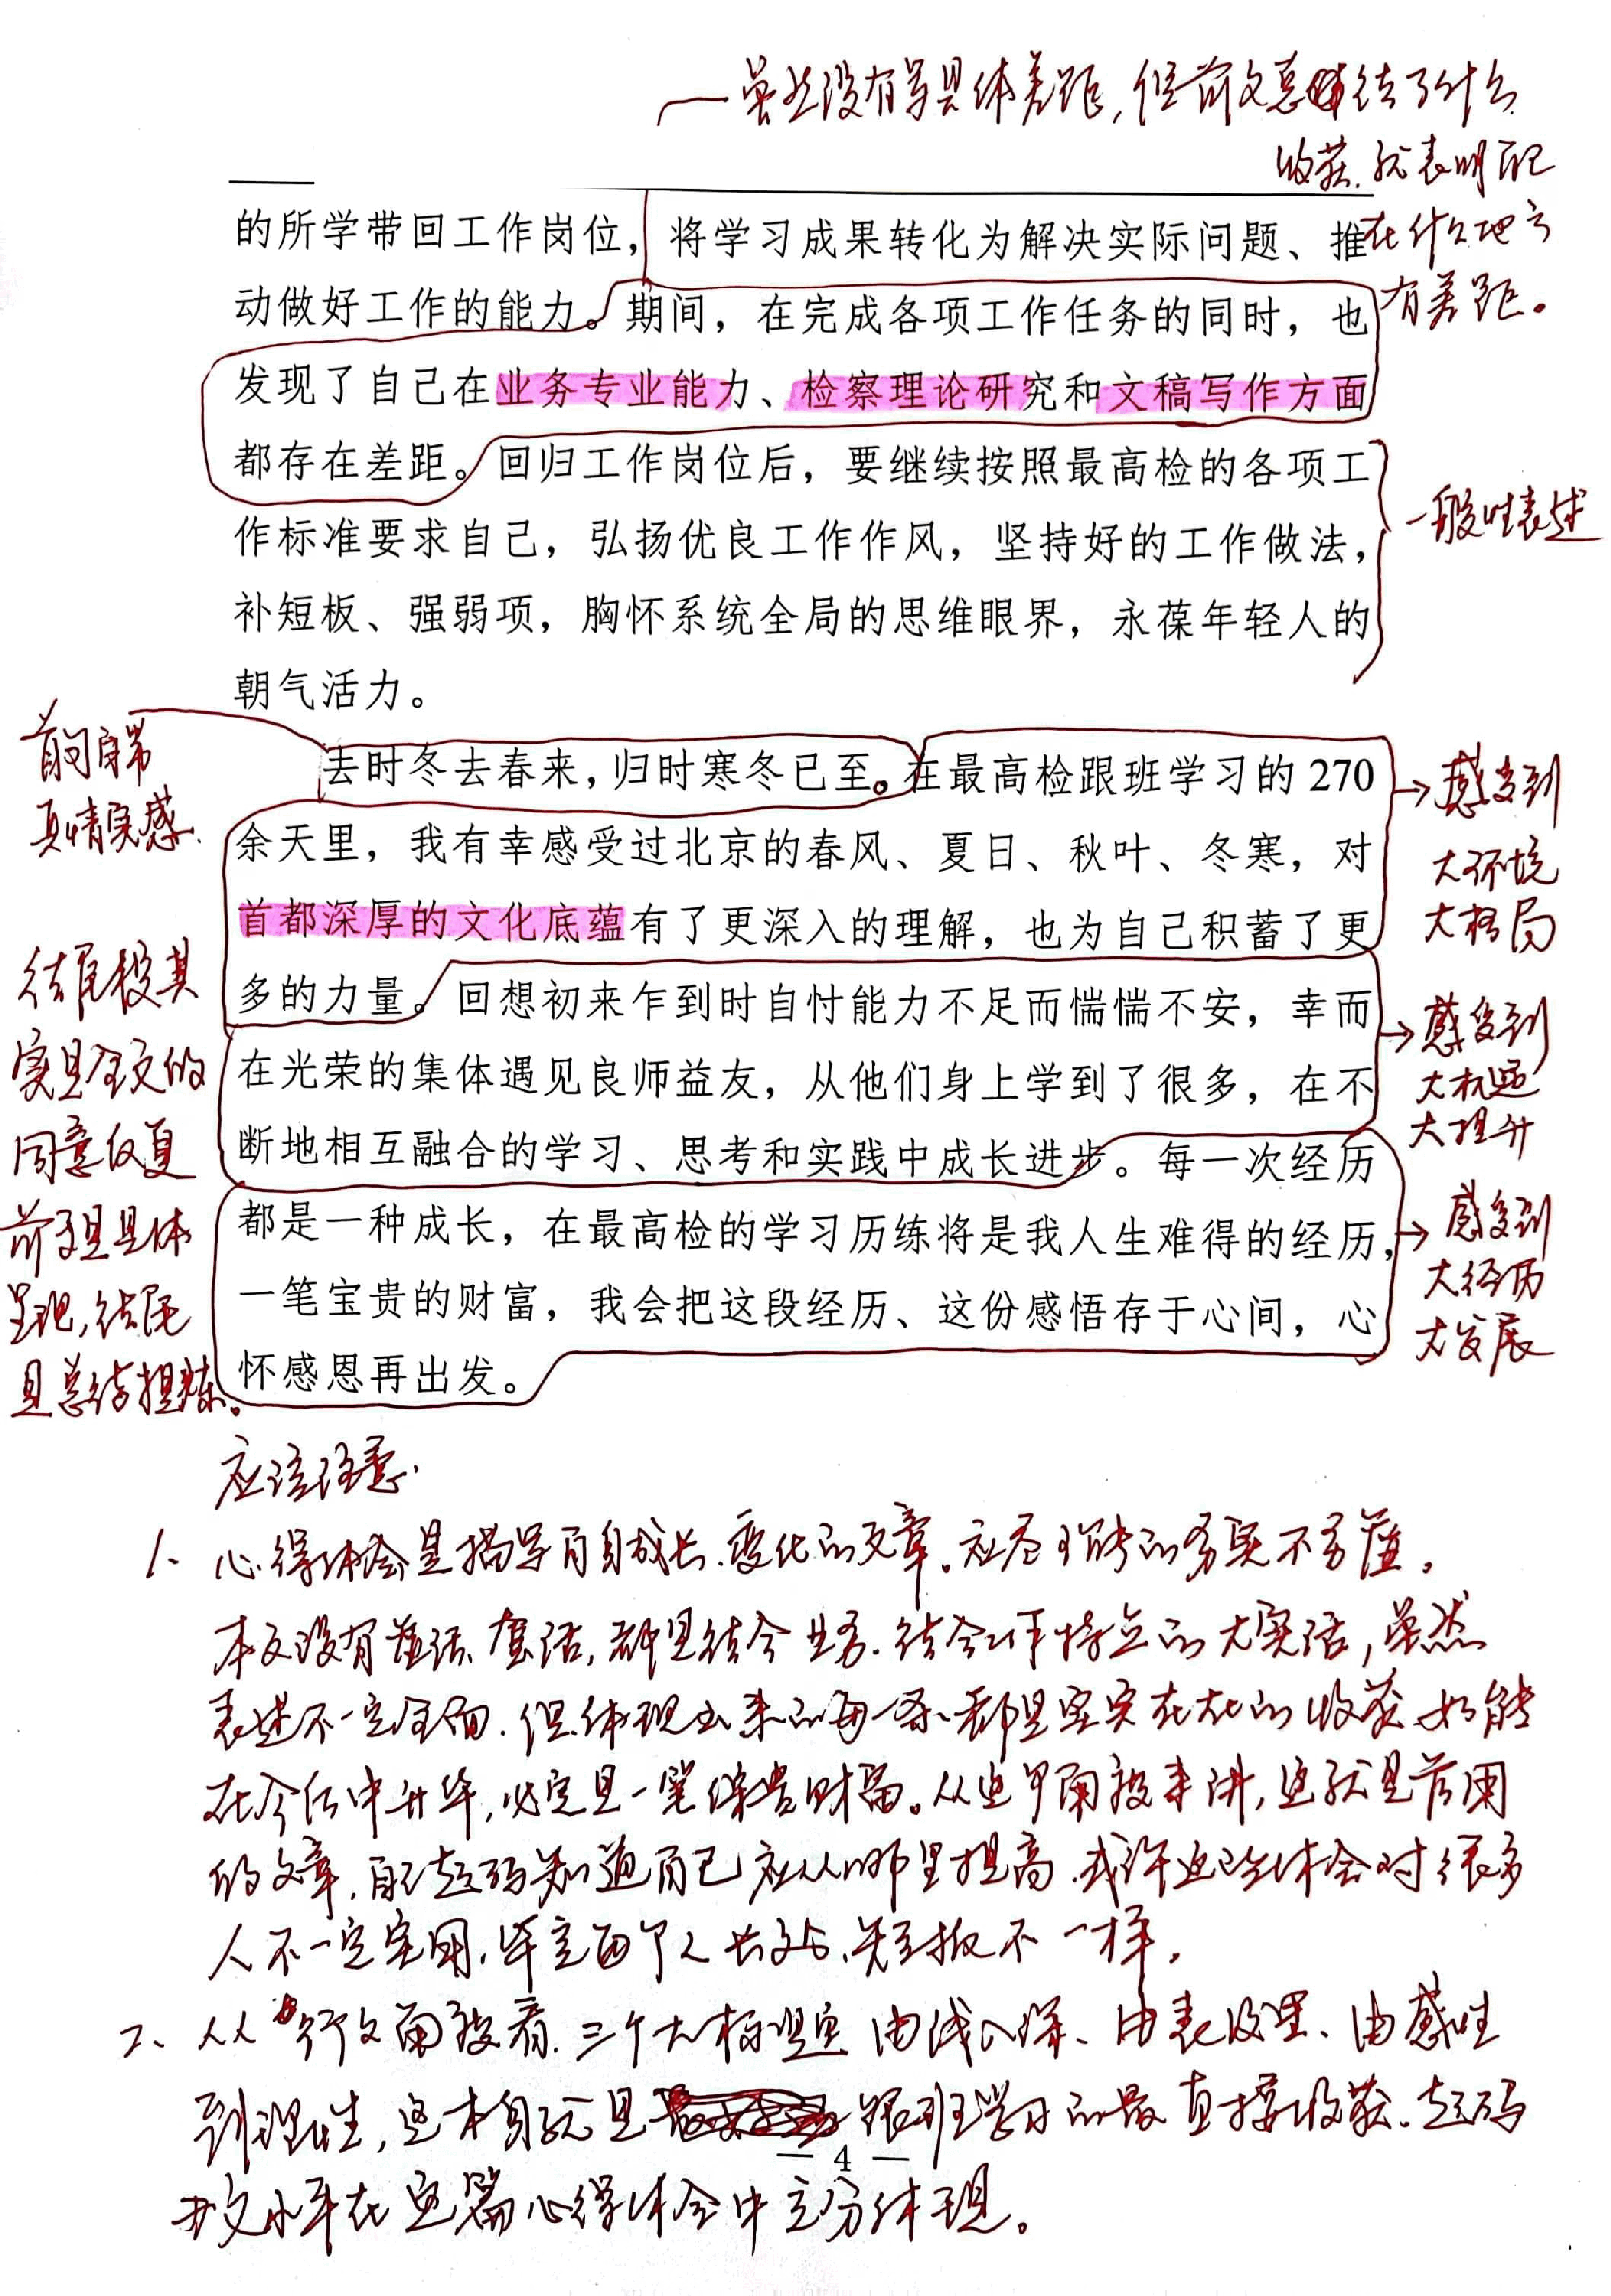 虽然没有写具体差距，但前文总结了什么
收获，就表明自己
在什么地方
有差距。
的所学带回工作岗位，将学习成果转化为解决实际问题、推
动做好工作的能力。期间，在完成各项工作任务的同时，也
发现了自己在业务专业能力、检察理论研究和文稿写作方面
都存在差距。回归工作岗位后，要继续按照最高检的各项工
作标准要求自己，弘扬优良工作作风，坚持好的工作做法，
补短板、强弱项，胸怀系统全局的思维眼界，永葆年轻人的
朝气活力。
一般性表述
首句自带
真情实感.
去时冬去春来，归时寒冬已至。在最高检跟班学习的 270
余天里，我有幸感受过北京的春风、夏日、秋叶、冬寒，对
首都深厚的文化底蕴有了更深入的理解，也为自己积蓄了更
多的力量。回想初来乍到时自忖能力不足而惴惴不安，幸而
在光荣的集体遇见良师益友，从他们身上学到了很多，在不
断地相互融合的学习、思考和实践中成长进步。每一次经历
都是一种成长，在最高检的学习历练将是我人生难得的经历，
一笔宝贵的财富，我会把这段经历、这份感悟存于心间，心
怀感恩再出发。
感受到
大环境
大格局
感受到
大机遇
大提升
感受到
大经历
大发展
结尾段其
实是全文的
同意反复
前文是具体
呈现，结尾
是总结提炼。
应该注意.
1、心得体会是描写自身成长、变化的文章。应尽可能的务实不务虚。
本文没有虚话、套话，都是结合业务、结合工作特点的大实话，虽然
表述不一定全面，但体现出来的每一条都是实实在在的收获，如能
在今后中升华，必定是一笔宝贵财富。从这个角度来讲，这就是有用
的文章，自己起码知道自己应从哪里提高，或许这些体会对很多
人不一定实用，毕竟每个人长处、短板不一样。
2、从行文角度看，三个大标题由浅入深、由表及里、由感性
到理性，这本身就是跟班学习的最直接收获，起码
— 4 —
水平在这篇心得体会中充分体现。